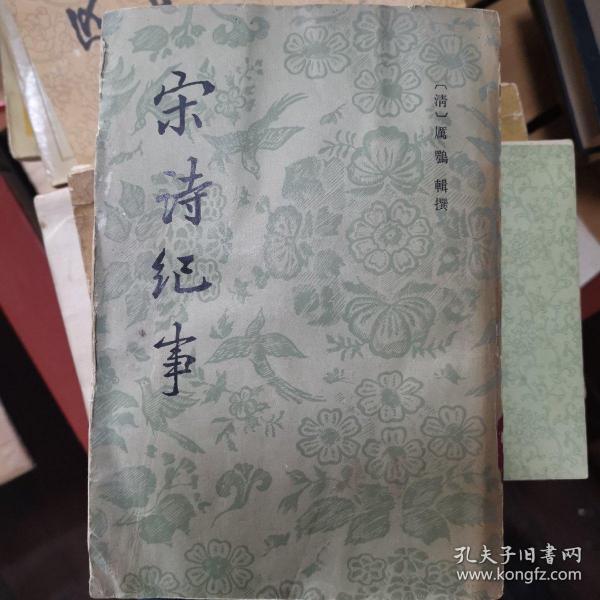 宋诗纪事
〔清〕厲鶚輯撰
孔夫子旧书网
www.kongfz.com